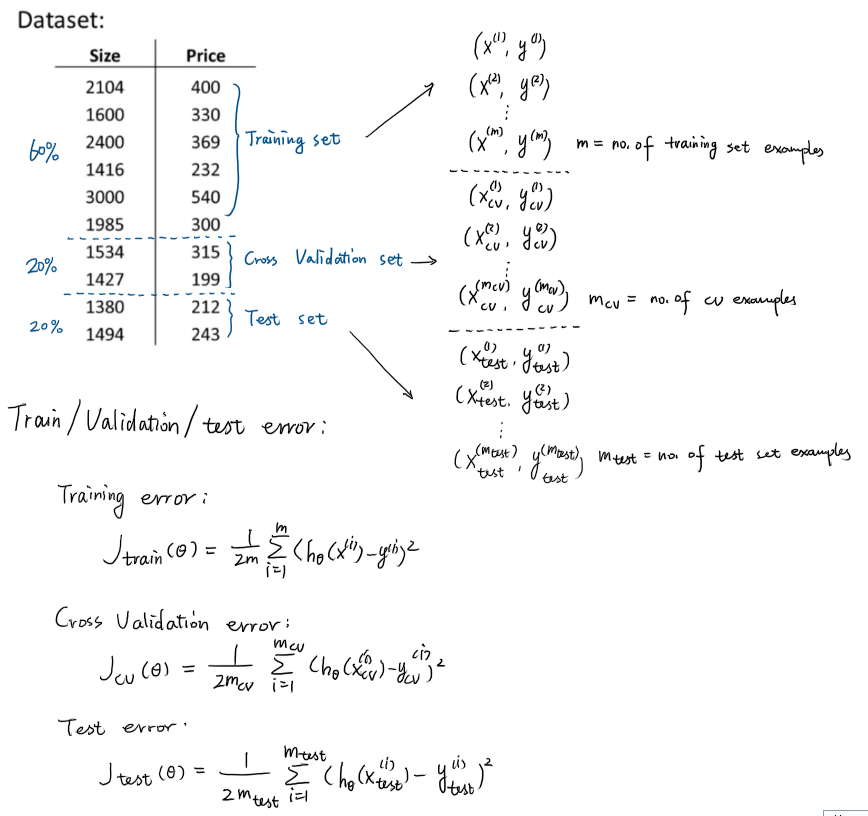 Dataset:
Size Price
2104 400
1600 330
2400 369
1416 232
3000 540
1985 300
1534 315
1427 199
1380 212
1494 243
60%
20%
20%
Training set
Cross Validation set
Test set
(x^(1), y^(1))
(x^(2), y^(2))
⋮
(x^(m), y^(m)) m = no. of training set examples
(x_cv^(1), y_cv^(1))
(x_cv^(2), y_cv^(2))
⋮
(x_cv^(m_cv), y_cv^(m_cv)) m_cv = no. of cv examples
(x_test^(1), y_test^(1))
(x_test^(2), y_test^(2))
⋮
(x_test^(m_test), y_test^(m_test)) m_test = no. of test set examples
Train/Validation/test error:
Training error:
J_train(θ) = 1/2m Σ_{i=1}^{m} (h_θ(x^(i)) - y^(i))^2
Cross Validation error:
J_cv(θ) = 1/2m_cv Σ_{i=1}^{m_cv} (h_θ(x_cv^(i)) - y_cv^(i))^2
Test error:
J_test(θ) = 1/2m_test Σ_{i=1}^{m_test} (h_θ(x_test^(i)) - y_test^(i))^2